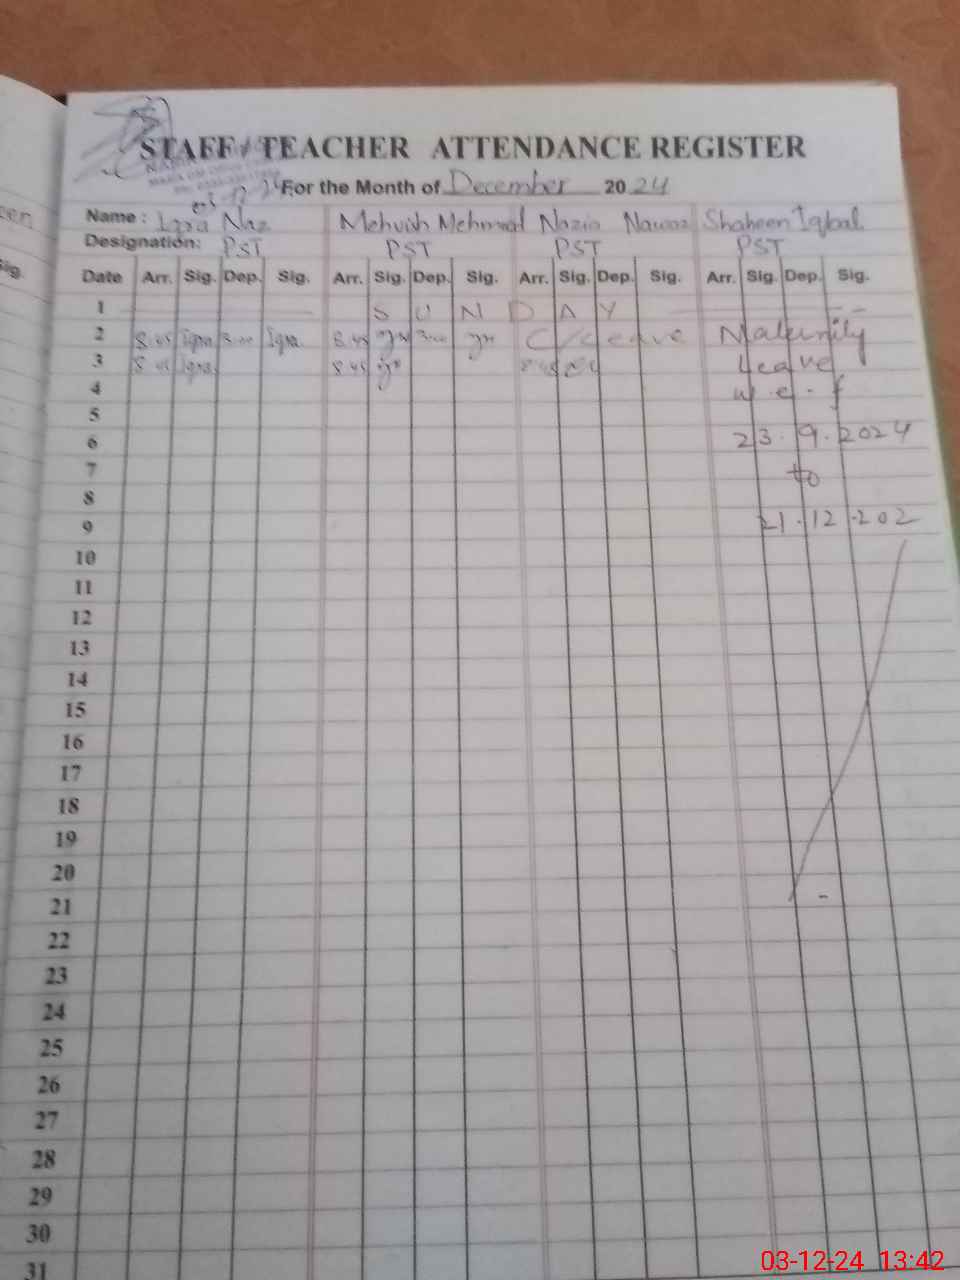 STAFF / TEACHER ATTENDANCE REGISTER
For the Month of December 2024
Name: Iqra Naz Mehvish Mehmood Nazia Nawaz Shaheen Iqbal
Designation: PST PST PST PST
Date Arr. Sig. Dep. Sig. Arr. Sig. Dep. Sig. Arr. Sig. Dep. Sig. Arr. Sig. Dep. Sig.
1 S U N D A Y
2 8.45 Iqra 3.00 Iqra 8.45 3.00 C/Leave Maternity
3 8 45 Iqra 8 45 Leave
4 w.e.f
5
6 23.9.2024
7 to
8
9 21.12.202
10
11
12
13
14
15
16
17
18
19
20
21
22
23
24
25
26
27
28
29
30
31
03-12-24 13:42